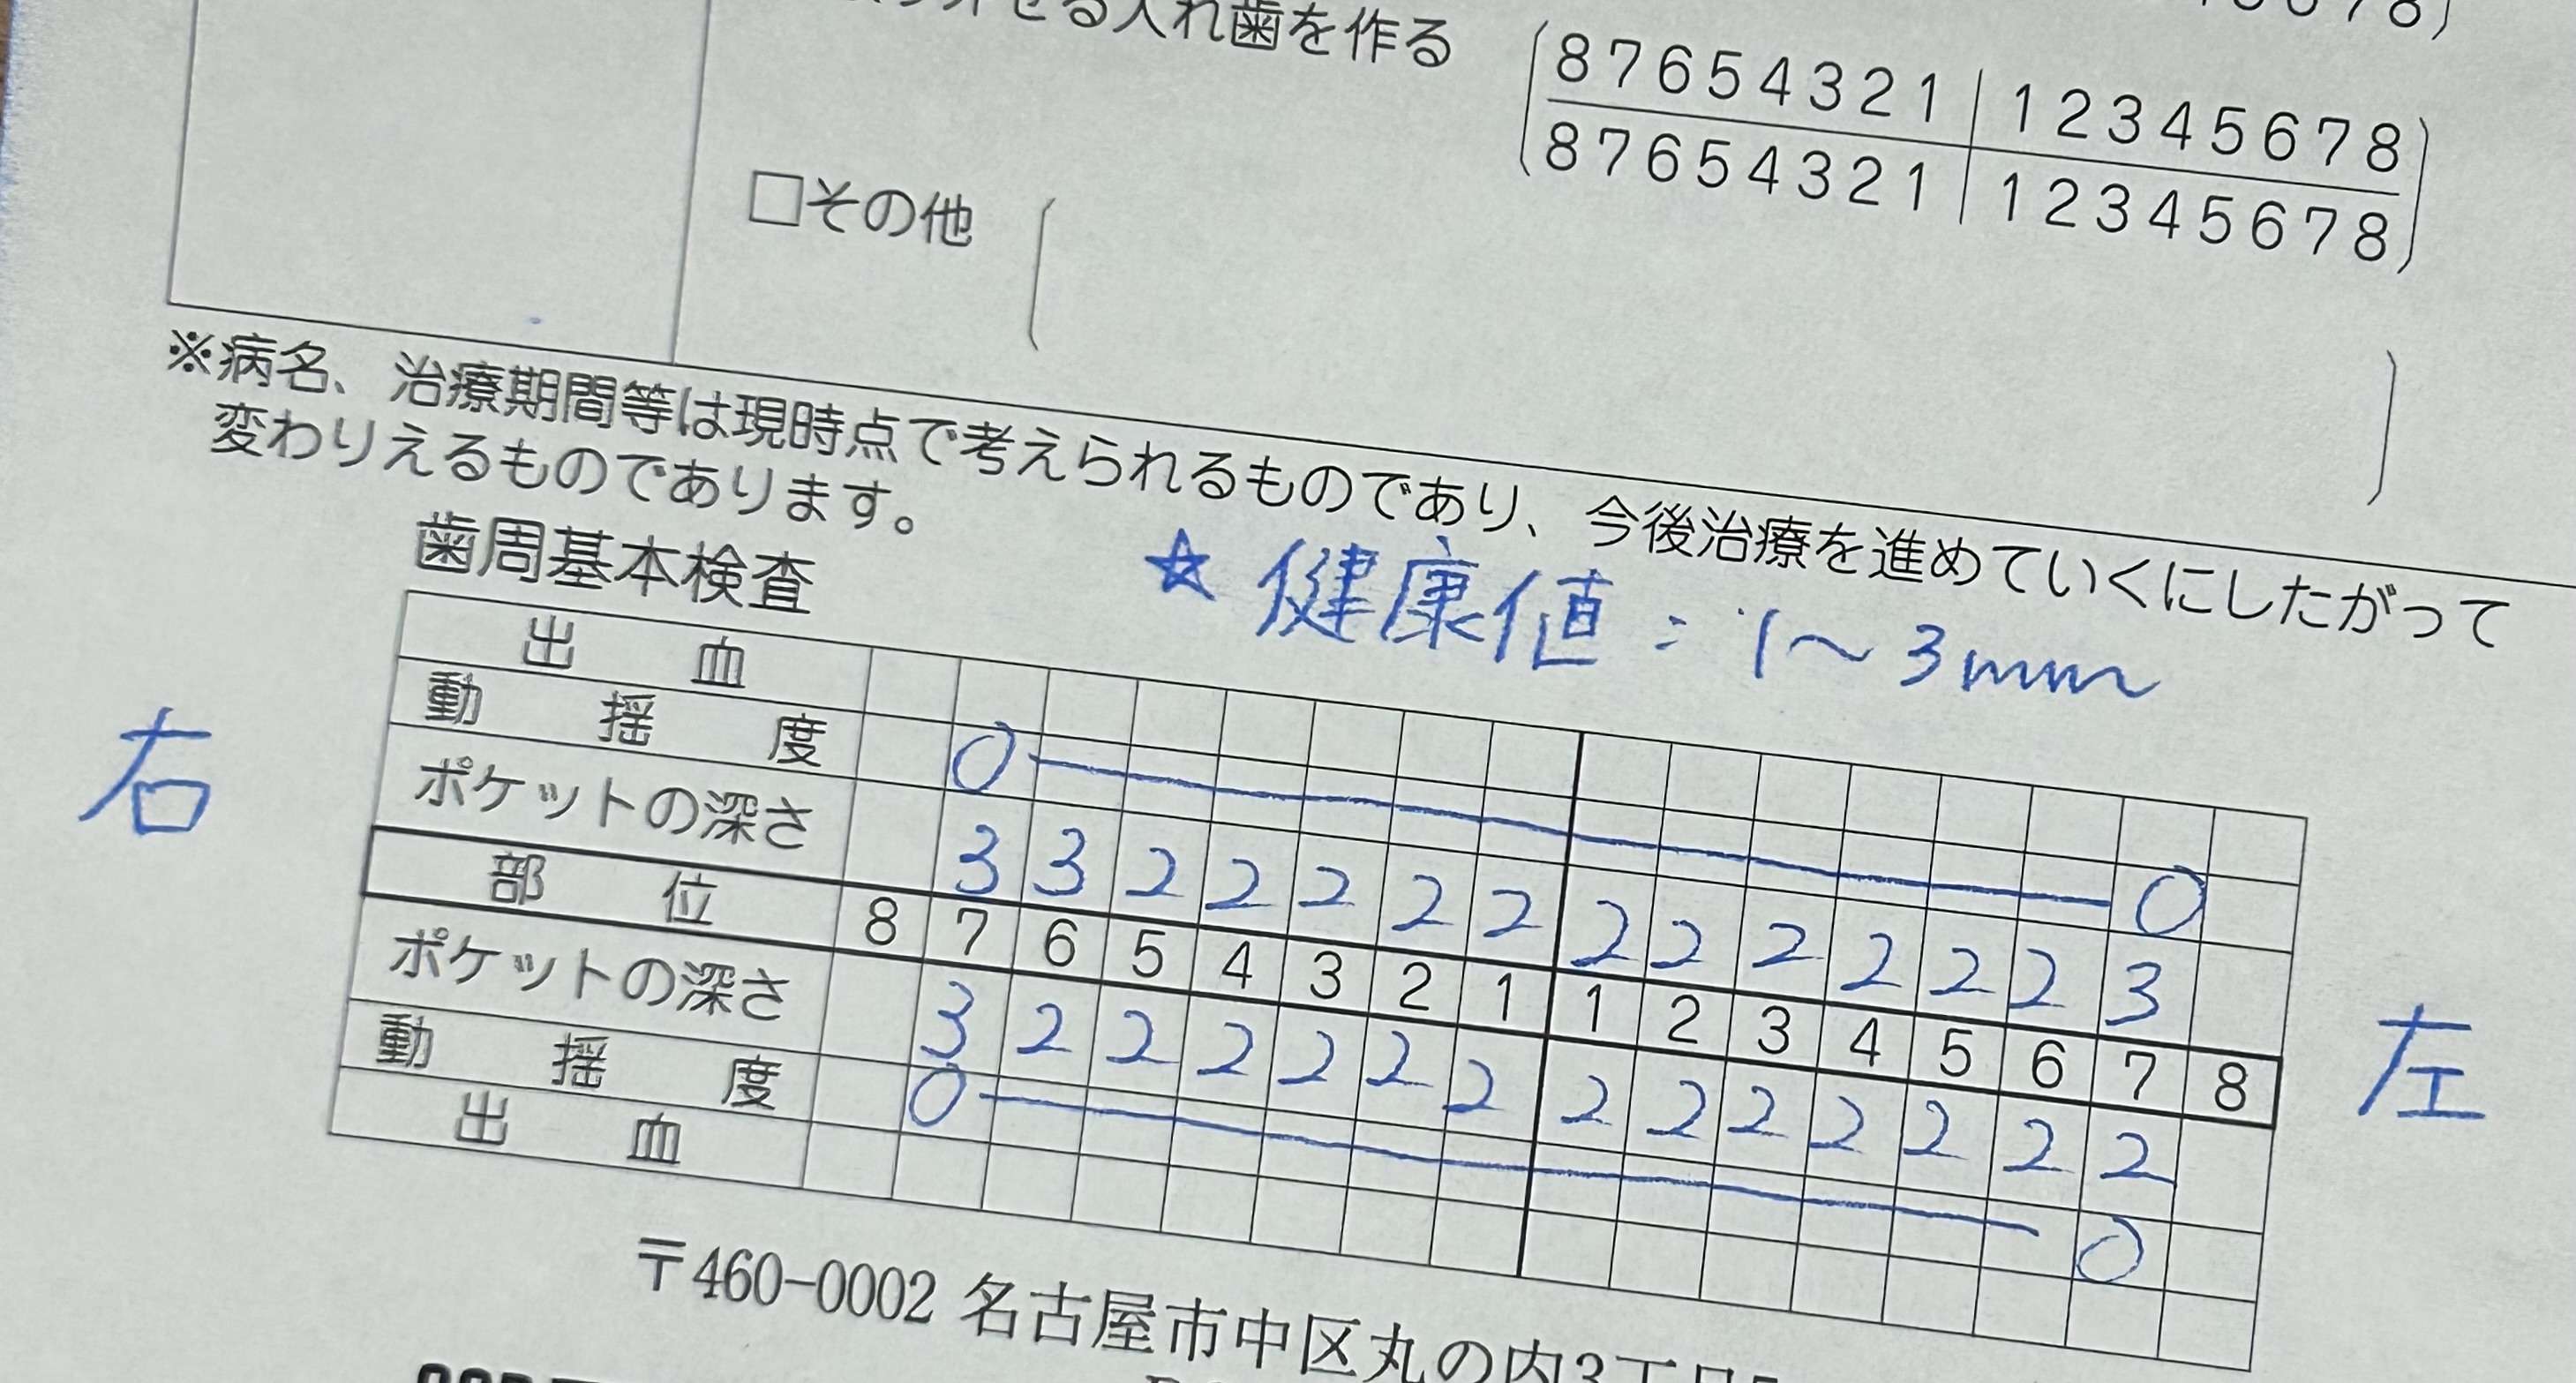 せる入れ歯を作る
8 7 6 5 4 3 2 1 1 2 3 4 5 6 7 8
8 7 6 5 4 3 2 1 1 2 3 4 5 6 7 8
□その他
※病名、治療期間等は現時点で考えられるものであり、今後治療を進めていくにしたがって
変わりえるものであります。
歯周基本検査
☆健康値：1〜3mm
出血
動揺度 0 0
右
ポケットの深さ 3 3 2 2 2 2 2 2 2 2 2 2 2 3
部位 8 7 6 5 4 3 2 1 1 2 3 4 5 6 7 8
左
ポケットの深さ 3 2 2 2 2 2 2 2 2 2 2 2 2 2
動揺度 0 0
出血
〒460-0002 名古屋市中区丸の内3丁目